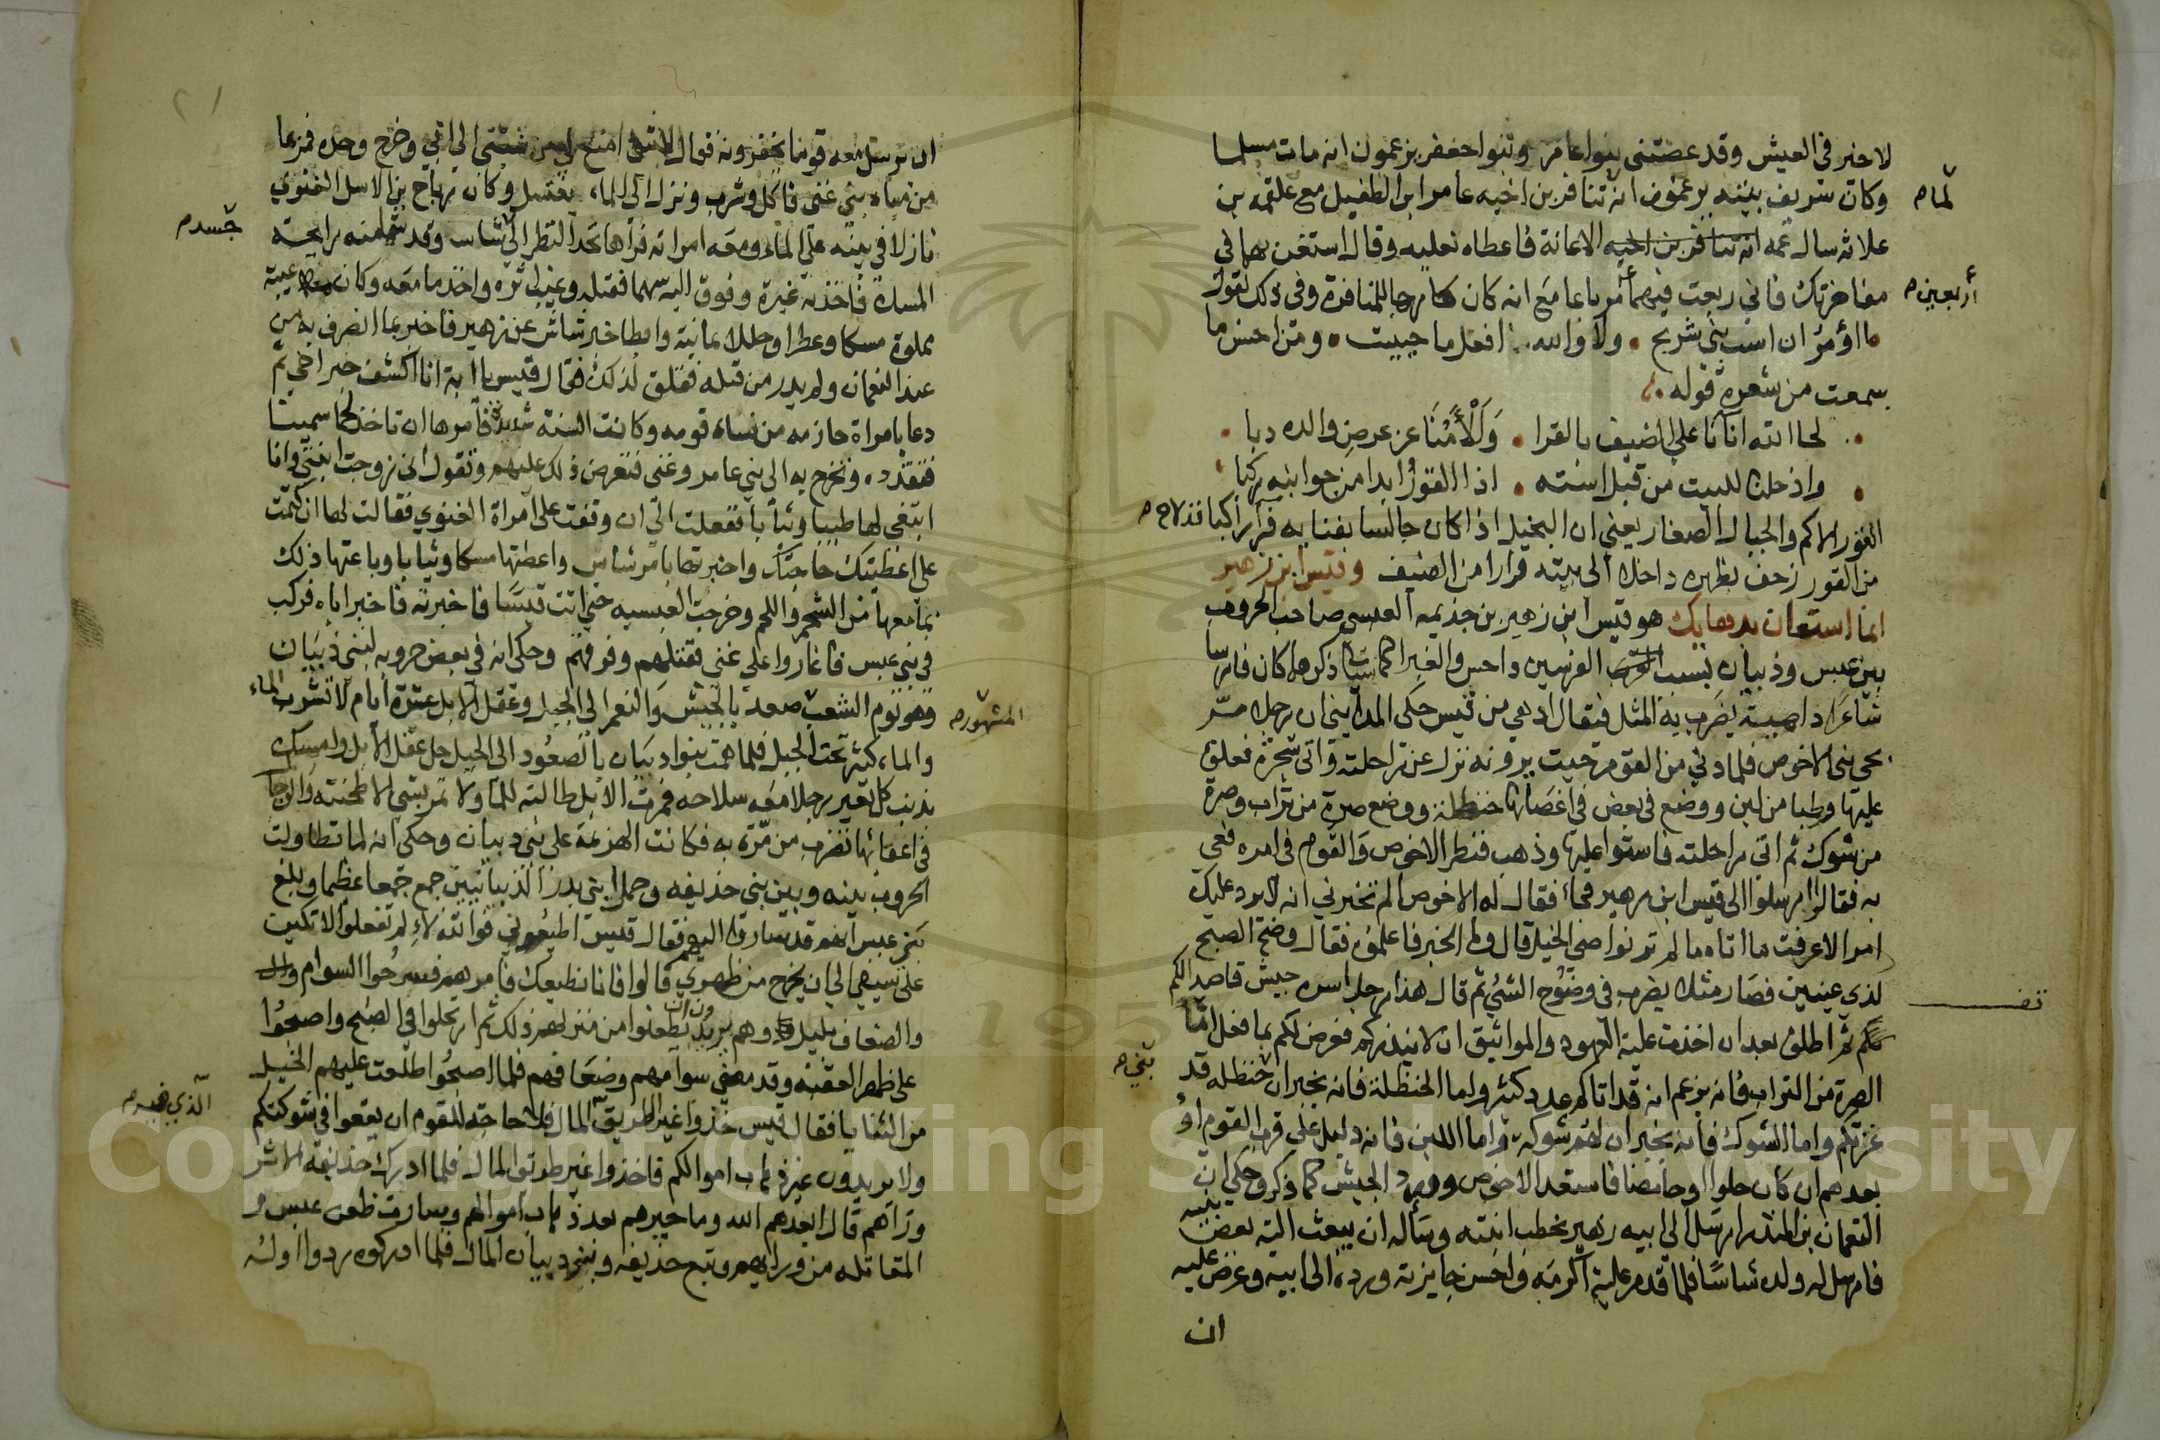 لا خير في العيش وقد عضتني بنوا عامر وبنوا جعفر يزعمون انه مات مسلما
وكان شريف بيته يزعمون انه تنافر بن اخيه عامر ابن الطفيل مع علقمه بن
لما م
علاثه سال عمه انه تنافر بن اخيه الاعانة فاعطاه نعليه وقال استعن بهما في
مفاخرتك فاني ربعت فيهما أمرباعا مع انه كان كارها للمنافرة وفي ذلك يقول
أربعين م
ااؤمر ان اسب بني شريح ولا والله افعل ما حييت ومن احسن ما
سمعت من شعره قوله
لحا الله انآنا على الضيف بالقرا وَأَلْأَمُنَا عن عرض والده دبا
وادخلنا للبيت من قبل استه اذا القور ابدا من جوانبه ركبا
القور الاكم والجبال الصغار يعني ان البخيل اذا كان جالسا بفنايه فرأ راكبا قد لاح م
من القور زحف بظهره داخلا الى بيته فرارا من الضيف وقيس ابن زهير
انما استعان بدهايك هو قيس ابن زهير بن جذيمه العبسي صاحب الحروب
بين عبس وذبيان بسبب الفرسين داحس والغبرا كما سياتي ذكرها كان فارسا
شاعرا داهية يضرب به المثل فيقال ادهى من قيس حكى المدايني ان رجلا مرّ
بحي بني الاخوص فلما دني من القوم حيث يرونه نزل عن راحلته واتى شجرة فعلق
عليها وطبا من لبن ووضع في بعض في اغصانها حنظلة ووضع صرة من تراب وصرة
من شوك ثم اتى راحلته فاستوا عليها وذهب فنظر الاخوص والقوم في امره فعي
به فقالوا ارسلوا الى قيس ابن زهير فجاء فقال له الاخوص الم تخبرني انه لا يرد عليك
امر الا عرفت ما اتاه ما لم تر نواصي الخيل قال وما الخبر فاعلموه فقال وضح الصبح
لذي عينين فصار مثلا يضرب في وضوح الشئ ثم قال هذا رجل اسره جيش قاصد الكم
لكم ثم اطلق بعد ان اخذت عليه العهود والمواثيق ان لا ينذركم فعرض لكم بما فعل امّا
الصرة من التراب فانه يزعم انه قد اتاكم عدد كثير واما الحنظلة فانه يخبر ان حنظله قد
بني م
غزتكم واما الشوك فانه يخبر ان لهم شوكه واما اللبن فانه دليل على قرب القوم او
بعدهم ان كان حلوا او حامضا فاستعد الاخوص وورد الجيش كما ذكر وحكي ان
النعمان بن المنذر ارسل الى ابيه زهير يخطب ابنته وسأله ان يبعث اليه بعض بنيه
فارسل له ولده شاسًا فلما قدم عليه اكرمه واحسن جايزته ورده الى ابيه وعرض عليه
ان
ان يرسل معه قوما يخفرونه فقال لا شئ امنع لي من نسبتي الى ابي وخرج وحده فمر بما
من مياه بني غني فاكل وشرب ونزل الى الماء يغتسل وكان رباح بن الاسل الغنوي
نازلا في بيته على الماء ومعه امراته فراها تحد النظر الى شاس وقد شم منه رايحة
جسد م
المسك فاخذته غيرة وفوق اليه سهما فقتله وغيب اثره واخذ ما معه وكان معه عيبة
مملوة مسكا وعطرا وحللا يمانية وابطا خبر شاس عن زهير فاخبر بما انصرف به من
عند النعمان ولم يدر من قتله فقلق لذلك فقال قيس يا ابة انا اكشف خبر اخي ثم
دعا بامراة حازمه من نساء قومه وكانت السنة شديدة فأمرها ان تاخذ لحما سمينا
فتقدده وتخرج به الى بني عامر وغنى فتعرض ذلك عليهم وتقول اني زوجت ابنتي وانا
ابتغي لها طيبا وثيابا ففعلت الى ان وقفت على امراة الغنوي فقالت لها ان كتمت
علي اعطيتك حاجتك واخبرتها بامر شاس واعطتها مسكا وثيابا وباعتها ذلك
بما معها من الشحم واللحم وخرجت العبسيه حتى اتت قيسًا فاخبرته فاخبر اباه فركب
في بني عبس فاغاروا على غنى فقتلهم وفرقهم وحكي انه في بعض حروبه لبني ذبيان
وهو يوم الشعب صعد بالجيش والنعم الى الجبل وعقل الابل عشرة أيام لا تشرب الماء
المشهور م
والماء كثير تحت الجبل فلما همت بنوا ذبيان بالصعود الى الجبل حل عقل الابل وامسك
بذنب كل بعير رجلا معه سلاحه فمرت الابل طالبة للما ولا تمر بشي الا طحنته والرجال
في اعقابها تضرب من مرّت به فكانت الهزيمة على بني ذبيان وحكى انه لما تطاولت
الحروب بينه وبين بني حذيفه وحمل ابني بدر الذبيانيين جمع جمعا عظيما وبلغ
بني عبس انهم قد ساروا اليهم فقال قيس اطيعوني فوالله لإن لم تفعلوا لاتكين
على سيفي الى ان يخرج من ظهري قالوا فانا نطيعك فامرهم فسرحوا السوام
والضعاف بليل وهم يريدون ان يظعنوا من منزلهم ذلك ثم ارتحلوا في الصبح واصبحوا
على ظهر العقبه وقد مضى سوامهم وضعافهم فلما اصبحوا طلعت عليهم الخيل
من الثنايا فقال قيس خذوا غير طريق المال فلا حاجة للقوم ان يقعوا في شوكتكم
ولا يريدون غير ذهاب اموالكم فاخذوا غير طريق المال فلما ادرك حذيفة الاثر
ورآهم قال ابعدهم الله وما خيرهم بعد ذهاب اموالهم وسارت ظعن عبس و
المقاتله من ورايهم وتبع حذيفه وبنو ذبيان المال فلما ادركوه ردوا اوله